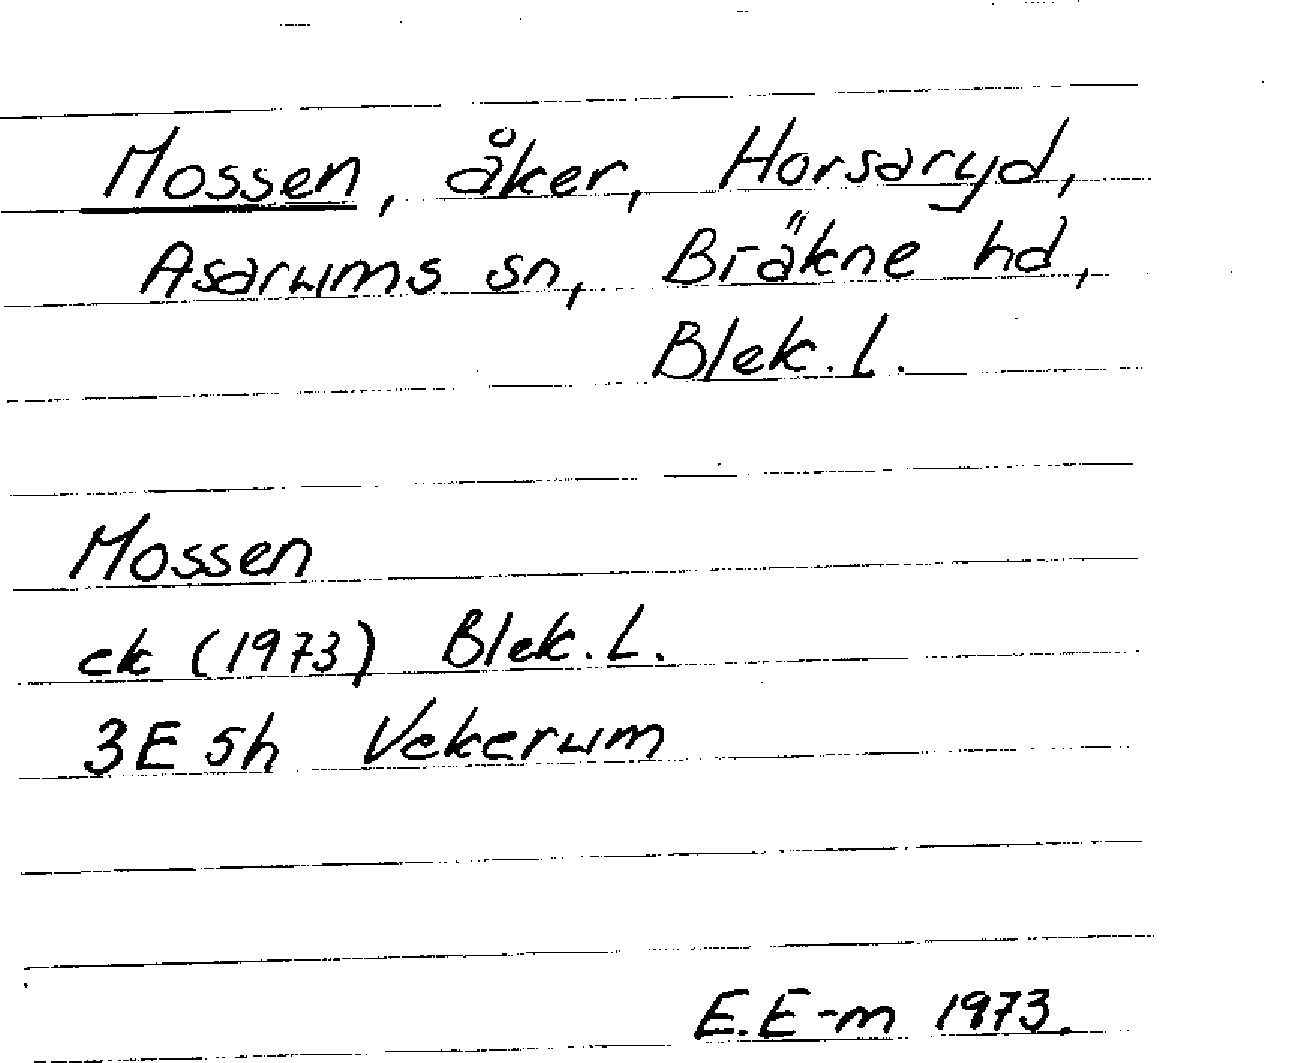 Mossen, åker, Horsaryd,
Asarums sn, Bräkne hd,
Blek. l.
Mossen
ek (1973) Blek. L.
3E 5h Vekerum
E.E-m 1973.